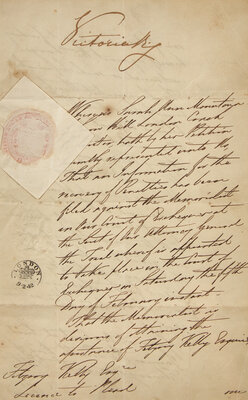 Victoria R
Whereas Sarah Ann Mountain
Hill London Coach
both by her Petition
represented unto Us,
That an Information for the
recovery of Penalties has been
filed against the Memorialist
in Our Court of Exchequer at
the Suit of Our Attorney General
the Trial whereof is appointed
to take place in the Court of
Exchequer on Saturday the fifth
Day of February instant.
That the Memorialist is
desirous of obtaining the
assistance of Fitzroy Kelly Esquire,
Fitzroy Kelly Esqre
Licence to Plead
LONDON